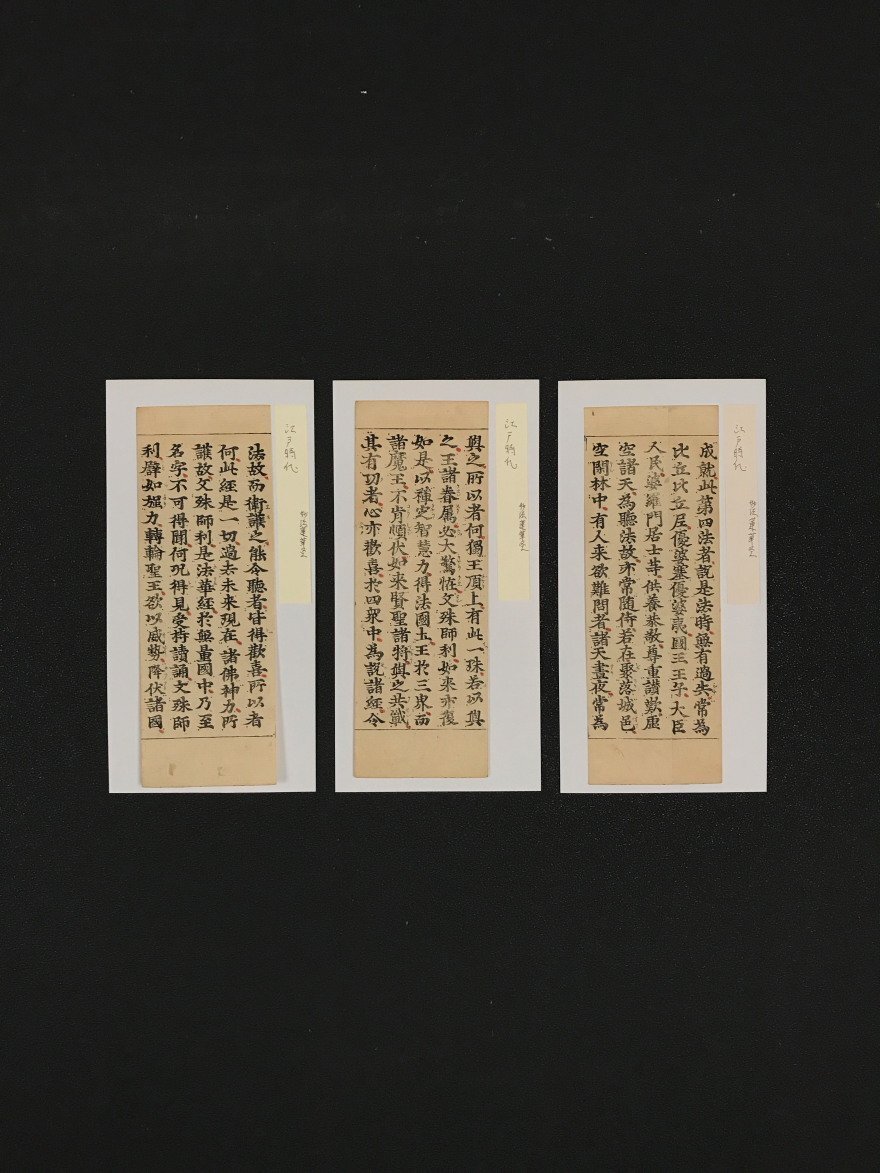 江戸時代
妙法蓮華経
成就此第四法者說是法時無有過失常為
比丘比丘尼優婆塞優婆夷國王王子大臣
人民婆羅門居士等供養恭敬尊重讃歎虛
空諸天為聽法故亦常隨侍若在聚落城邑
空閑林中有人来欲難問者諸天晝夜常為
江戸時代
妙法蓮華経
與之所以者何獨王頂上有此一珠若以與
之王諸眷屬必大驚恠文殊師利如来亦復
如是以禪定智慧力得法國土王於三界而
諸魔王不肯順伏如来賢聖諸將與之共戰
其有功者心亦歡喜於四衆中為說諸經令
江戸時代
妙法蓮華経
法故而衛護之能令聽者皆得歡喜所以者
何此經是一切過去未来現在諸佛神力所
護故文殊師利是法華經於無量國中乃至
名字不可得聞何況得見受持讀誦文殊師
利譬如強力轉輪聖王欲以威勢降伏諸國